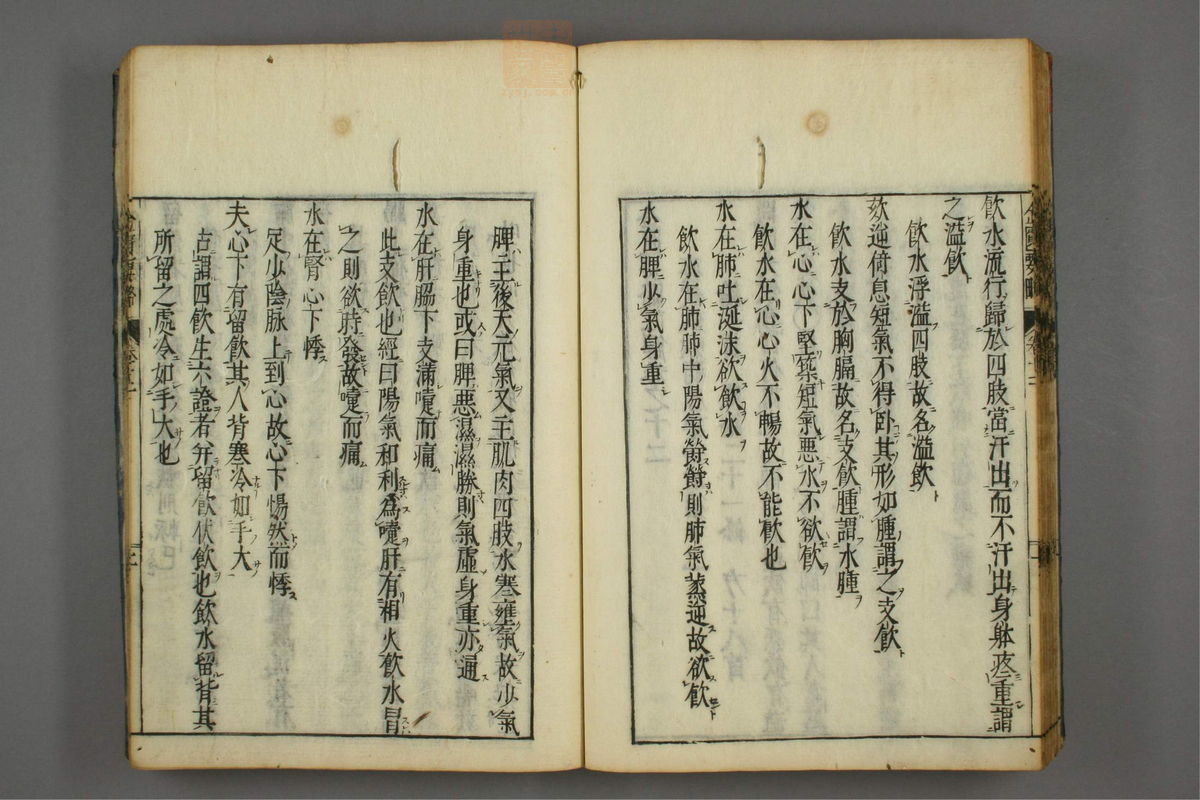 飲水流行歸於四肢當汗出而不汗出身躰疼重謂
之溢飲
飲水浮溢四肢故名溢飲
欬逆倚息短氣不得臥其形如腫謂之支飲
飲水支於胸膈故名支飲腫謂水腫
水在心心下堅築短氣惡水不欲飲
飲水在心心火不暢故不能飲也
水在肺吐涎沫欲飲水
飲水在肺肺中陽氣則肺氣蒸逆故欲飲
水在脾少氣身重
脾主後天元氣又主肌肉四肢水寒雍氣故少氣
身重也或曰脾惡濕濕勝則氣虛身重亦通
水在肝脇下支滿嚏而痛
此支飲也經曰陽氣和利為嚏肝有相火飲水冒
之則欲時發故嚏而痛
水在腎心下悸
足少陰脉上到心故心下惕然而悸
夫心下有留飲其人背寒冷如手大
古謂四飲生六證者并留飲伏飲也飲水留背其
所留之處冷如手大也